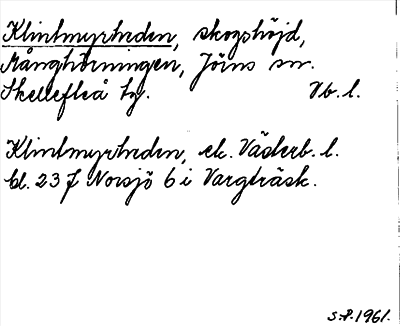 Klintmyrheden, skogshöjd,
Månghörningen, Jörns sn.
Skellefteå tg. Vb. l.
Klintmyrheden, ek. Västerb. l.
bl. 23 f Norsjö 6 i Vargträsk.
S.P. 1961.